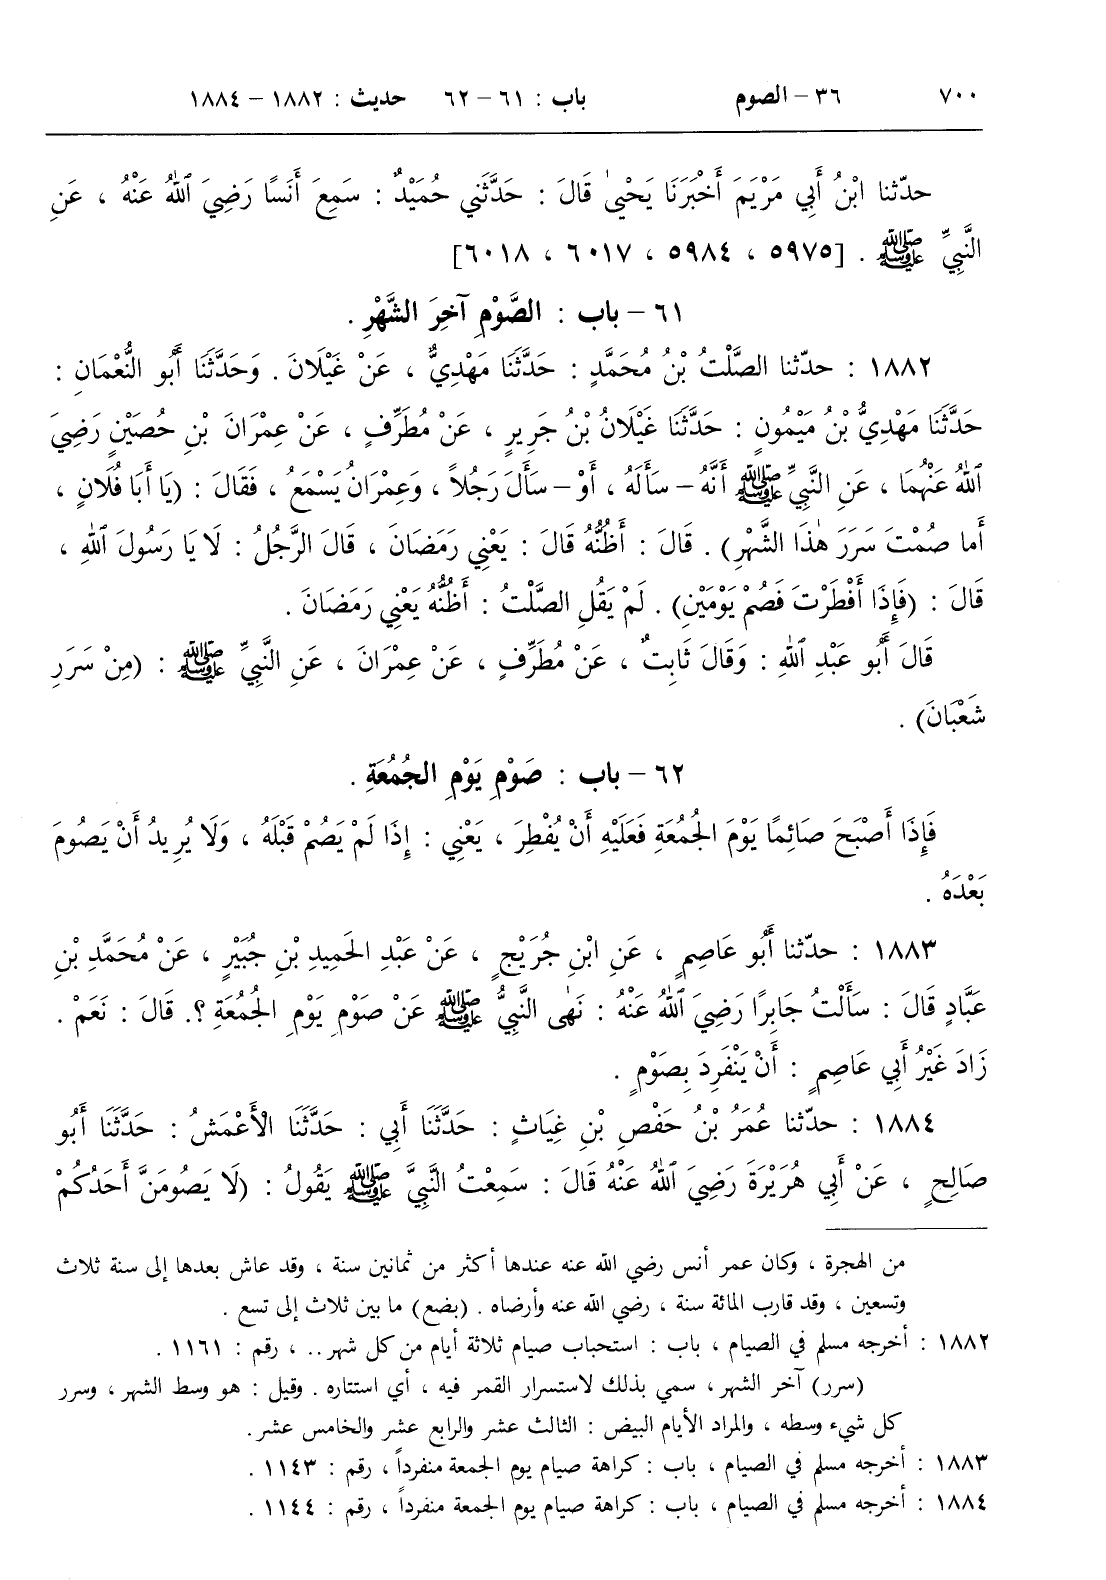 ٧٠٠ ٣٦ – الصوم باب : ٦١ – ٦٢ حديث : ١٨٨٢ – ١٨٨٤
حدّثنا ابْنُ أَبِي مَرْيَمَ أَخْبَرَنَا يَحْيىٰ قَالَ : حَدَّثَنِي حُمَيْدٌ : سَمِعَ أَنَسًا رَضِيَ ٱللهُ عَنْهُ ، عَنِ
النَّبِيِّ ﷺ . [٥٩٧٥ ، ٥٩٨٤ ، ٦٠١٧ ، ٦٠١٨]
٦١ – باب : الصَّوْمِ آخِرَ الشَّهْرِ .
١٨٨٢ : حدّثنا الصَّلْتُ بْنُ مُحَمَّدٍ : حَدَّثَنَا مَهْدِيٌّ ، عَنْ غَيْلَانَ . وَحَدَّثَنَا أَبُو النُّعْمَانِ :
حَدَّثَنَا مَهْدِيُّ بْنُ مَيْمُونٍ : حَدَّثَنَا غَيْلَانُ بْنُ جَرِيرٍ ، عَنْ مُطَرِّفٍ ، عَنْ عِمْرَانَ بْنِ حُصَيْنٍ رَضِيَ
ٱللهُ عَنْهُمَا ، عَنِ النَّبِيِّ ﷺ أَنَّهُ – سَأَلَهُ ، أَوْ – سَأَلَ رَجُلاً ، وَعِمْرَانُ يَسْمَعُ ، فَقَالَ : (يَا أَبَا فُلَانٍ ،
أَما صُمْتَ سَرَرَ هٰذَا الشَّهْرِ) . قَالَ : أَظُنُّهُ قَالَ : يَعْنِي رَمَضَانَ ، قَالَ الرَّجُلُ : لَا يَا رَسُولَ ٱللهِ ،
قَالَ : (فَإِذَا أَفْطَرْتَ فَصُمْ يَوْمَيْنِ) . لَمْ يَقُلِ الصَّلْتُ : أَظُنُّهُ يَعْنِي رَمَضَانَ .
قَالَ أَبُو عَبْدِ ٱللهِ : وَقَالَ ثَابِتٌ ، عَنْ مُطَرِّفٍ ، عَنْ عِمْرَانَ ، عَنِ النَّبِيِّ ﷺ : (مِنْ سَرَرِ
شَعْبَانَ) .
٦٢ – باب : صَوْمِ يَوْمِ الجُمُعَةِ .
فَإِذَا أَصْبَحَ صَائِمًا يَوْمَ الجُمُعَةِ فَعَلَيْهِ أَنْ يُفْطِرَ ، يَعْنِي : إِذَا لَمْ يَصُمْ قَبْلَهُ ، وَلَا يُرِيدُ أَنْ يَصُومَ
بَعْدَهُ .
١٨٨٣ : حدّثنا أَبُو عَاصِمٍ ، عَنِ ابْنِ جُرَيْجٍ ، عَنْ عَبْدِ الحَمِيدِ بْنِ جُبَيْرٍ ، عَنْ مُحَمَّدِ بْنِ
عَبَّادٍ قَالَ : سَأَلْتُ جَابِرًا رَضِيَ ٱللهُ عَنْهُ : نَهٰى النَّبِيُّ ﷺ عَنْ صَوْمِ يَوْمِ الجُمُعَةِ ؟. قَالَ : نَعَمْ .
زَادَ غَيْرُ أَبِي عَاصِمٍ : أَنْ يَنْفَرِدَ بِصَوْمٍ .
١٨٨٤ : حدّثنا عُمَرُ بْنُ حَفْصِ بْنِ غِيَاثٍ : حَدَّثَنَا أَبِي : حَدَّثَنَا الْأَعْمَشُ : حَدَّثَنَا أَبُو
صَالِحٍ ، عَنْ أَبِي هُرَيْرَةَ رَضِيَ ٱللهُ عَنْهُ قَالَ : سَمِعْتُ النَّبِيَّ ﷺ يَقُولُ : (لَا يَصُومَنَّ أَحَدُكُمْ
من الهجرة ، وكان عمر أنس رضي الله عنه عندها أكثر من ثمانين سنة ، وقد عاش بعدها إلى سنة ثلاث
وتسعين ، وقد قارب المائة سنة ، رضي الله عنه وأرضاه . (بضع) ما بين ثلاث إلى تسع .
١٨٨٢ : أخرجه مسلم في الصيام ، باب : استحباب صيام ثلاثة أيام من كل شهر .. ، رقم : ١١٦١ .
(سرر) آخر الشهر ، سمي بذلك لاستسرار القمر فيه ، أي استتاره . وقيل : هو وسط الشهر ، وسرر
كل شيء وسطه ، والمراد الأيام البيض : الثالث عشر والرابع عشر والخامس عشر .
١٨٨٣ : أخرجه مسلم في الصيام ، باب : كراهة صيام يوم الجمعة منفرداً ، رقم : ١١٤٣ .
١٨٨٤ : أخرجه مسلم في الصيام ، باب : كراهة صيام يوم الجمعة منفرداً ، رقم : ١١٤٤ .